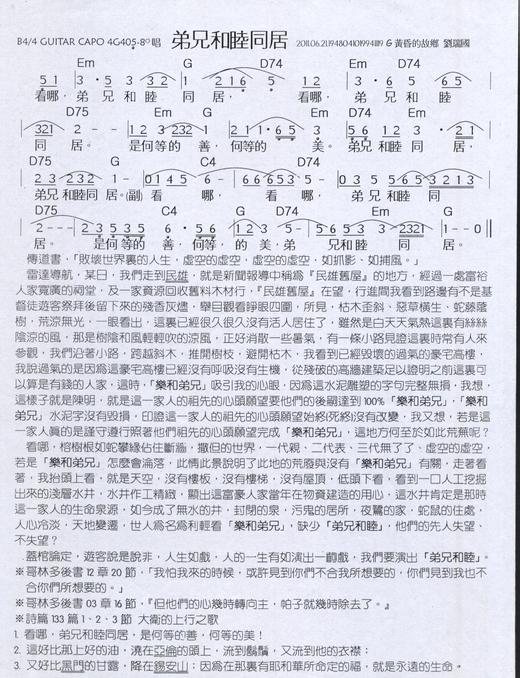 B4/4 GUITAR CAPO 4G405-8° 唱 弟兄和睦同居 2011.06.21.19480410199411I9 G 黃昏的故鄉 劉瑞國
Em G D74 Em
看哪，弟兄和睦 同居， 看哪，弟兄和睦
D75 G Em D74 Em
同居。 是何等的善，何等的 美。弟兄和睦
D75 G C4 D74
弟兄和睦同居。(副) 看 哪， 看 哪，弟兄和睦 同
D75 C4 G D74 Em G
居。 是何等的善，何等的美，弟 兄和睦 同居。
傳道書，「敗壞世界裏的人生，虛空的虛空，虛空的虛空，如抓影、如捕風。」
雷達導航，某日，我們走到民雄，就是新聞報導中稱為『民雄舊屋』的地方，經過一處富裕
人家寬廣的祠堂，及一家資源回收舊料木材行，『民雄舊屋』在望，行進間我看到路邊有不是基
督徒遊客祭拜後留下來的殘香灰燼，舉目觀看睜眼四圍，所見，枯木歪斜、惡草橫生、蛇藤蔭
樹，荒涼無光，一眼看出，這裏已經很久很久沒有活人居住了，雖然是白天天氣熱這裏有絲絲
陰涼的風，那是樹陰和風輕輕吹的涼風，正好消散一些暑氣，有一條小路見證這裏時常有人來
參觀，我們沿著小路，跨越斜木，推開樹枝，避開枯木，我看到已經毀壞的過氣的豪宅高樓，
我說過氣的是因為這豪宅高樓已經沒有呼吸沒有生機，從殘破的高牆建築足以證明之前這裏可
以算是有錢的人家，這時，「樂和弟兄」吸引我的心眼，因為這水泥雕塑的字句完整無損，我想，
這樣子就是陳明，就是這一家人的祖先的心頭願望要他們的後嗣達到 100%「樂和弟兄」，「樂和
弟兄」水泥字沒有毀損，印證這一家人的祖先的心頭願望她終(死終)沒有改變，我又想，若是這
一家人真的是謹守遵行照著他們祖先的心頭願望完成「樂和弟兄」，這地方何至於如此荒蕪呢？
看哪，榕樹根如蛇攀緣佔住斷牆，撒但的世界，一代親、二代表、三代無了了、虛空的虛空，
若是「樂和弟兄」怎麼會淪落，此情此景說明了此地的荒廢與沒有「樂和弟兄」有關，走著看
著，我抬頭上看，就是天空，沒有樓板，沒有樓梯，沒有屋頂，低頭下看，看到一口人工挖掘
出來的淺層水井，水井作工精緻，顯出這富豪人家當年在物資建造的用心，這水井肯定是那時
這一家人的生命泉源，如今成了無水的井，封閉的泉，污鬼的居所，夜鷲的家，蛇鼠的住處，
人心冷淡，天地變遷，世人為名為利輕看「樂和弟兄」，缺少「弟兄和睦」，他們的先人失望、
不失望？
蓋棺論定，遊客說是說非，人生如戲，人的一生有如演出一齣戲，我們要演出「弟兄和睦」。
※哥林多後書 12 章 20 節，「我怕我來的時候，或許見到你們不合我所想要的，你們見到我也不
合你們所想要的。」
※哥林多後書 03 章 16 節，『但他們的心幾時轉向主，帕子就幾時除去了。』
※詩篇 133 篇 1、2、3 節 大衛的上行之歌
1. 看哪，弟兄和睦同居，是何等的善，何等的美！
2. 這好比那上好的油，澆在亞倫的頭上，流到鬍鬚，又流到他的衣襟；
3. 又好比黑門的甘露，降在錫安山；因為在那裏有耶和華所命定的福，就是永遠的生命。